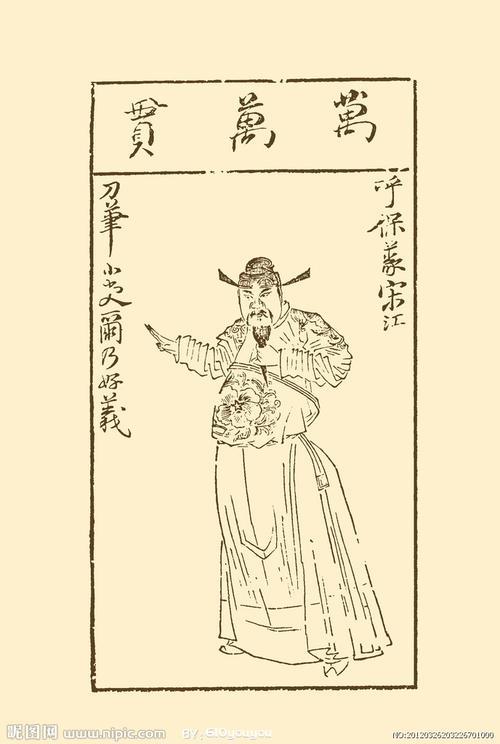 萬萬貫
呼保義宋江
刀筆小吏爾乃好義
昵图网 www.nipic.com
BY:610youyou
NO:20120326203226701000